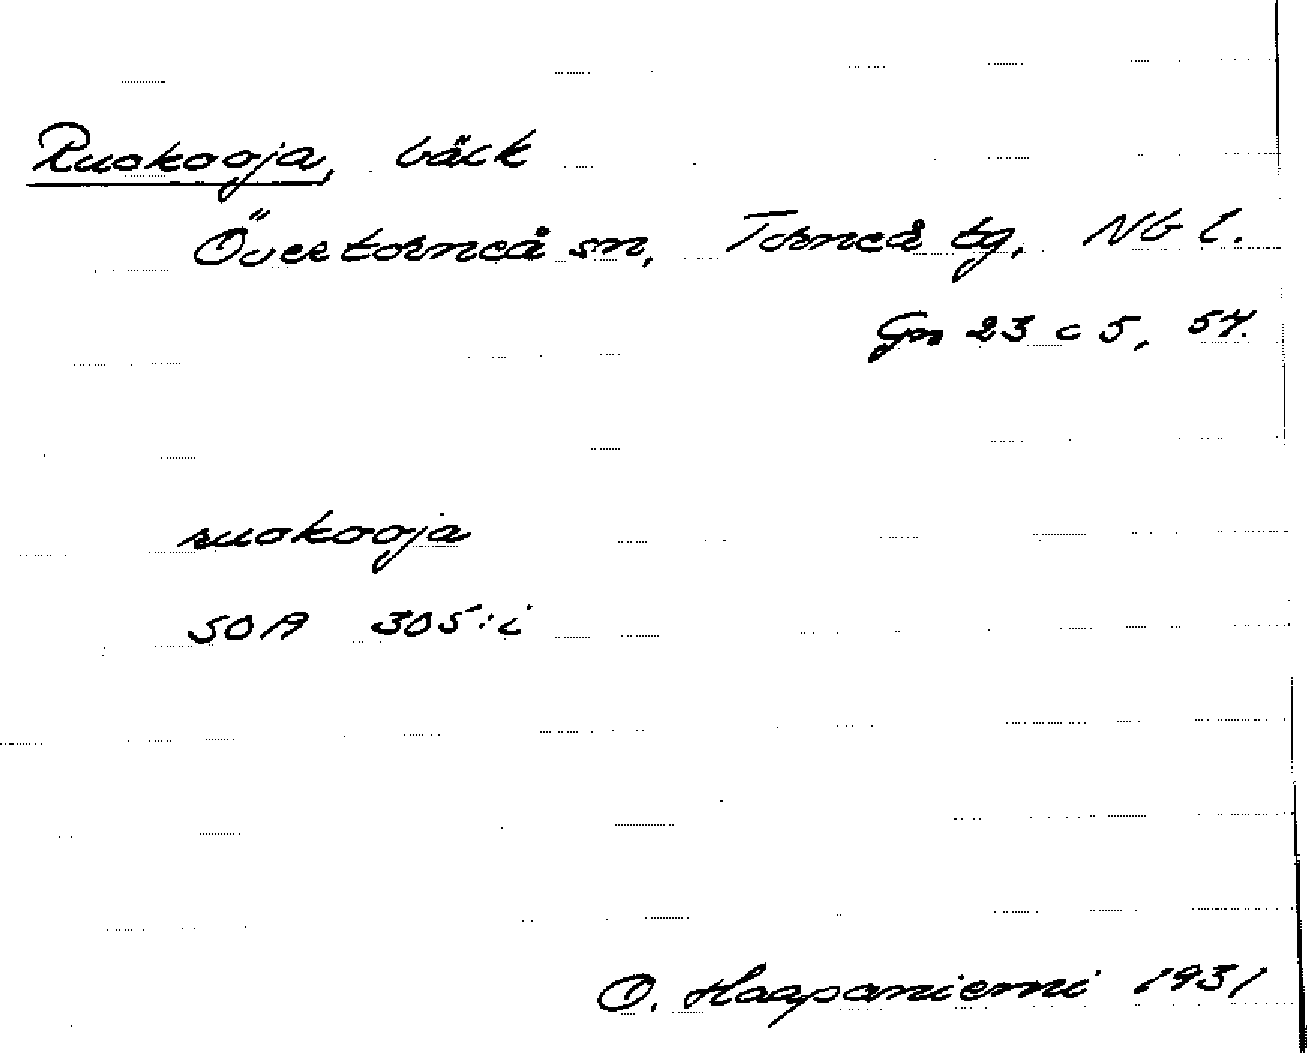 Ruokooja, bäck
Övertorneå sn, Torneå tg, Nb l.
Gn 23 c 5, 54.
ruokooja
SOA 305:i
O. Haapaniemi 1931